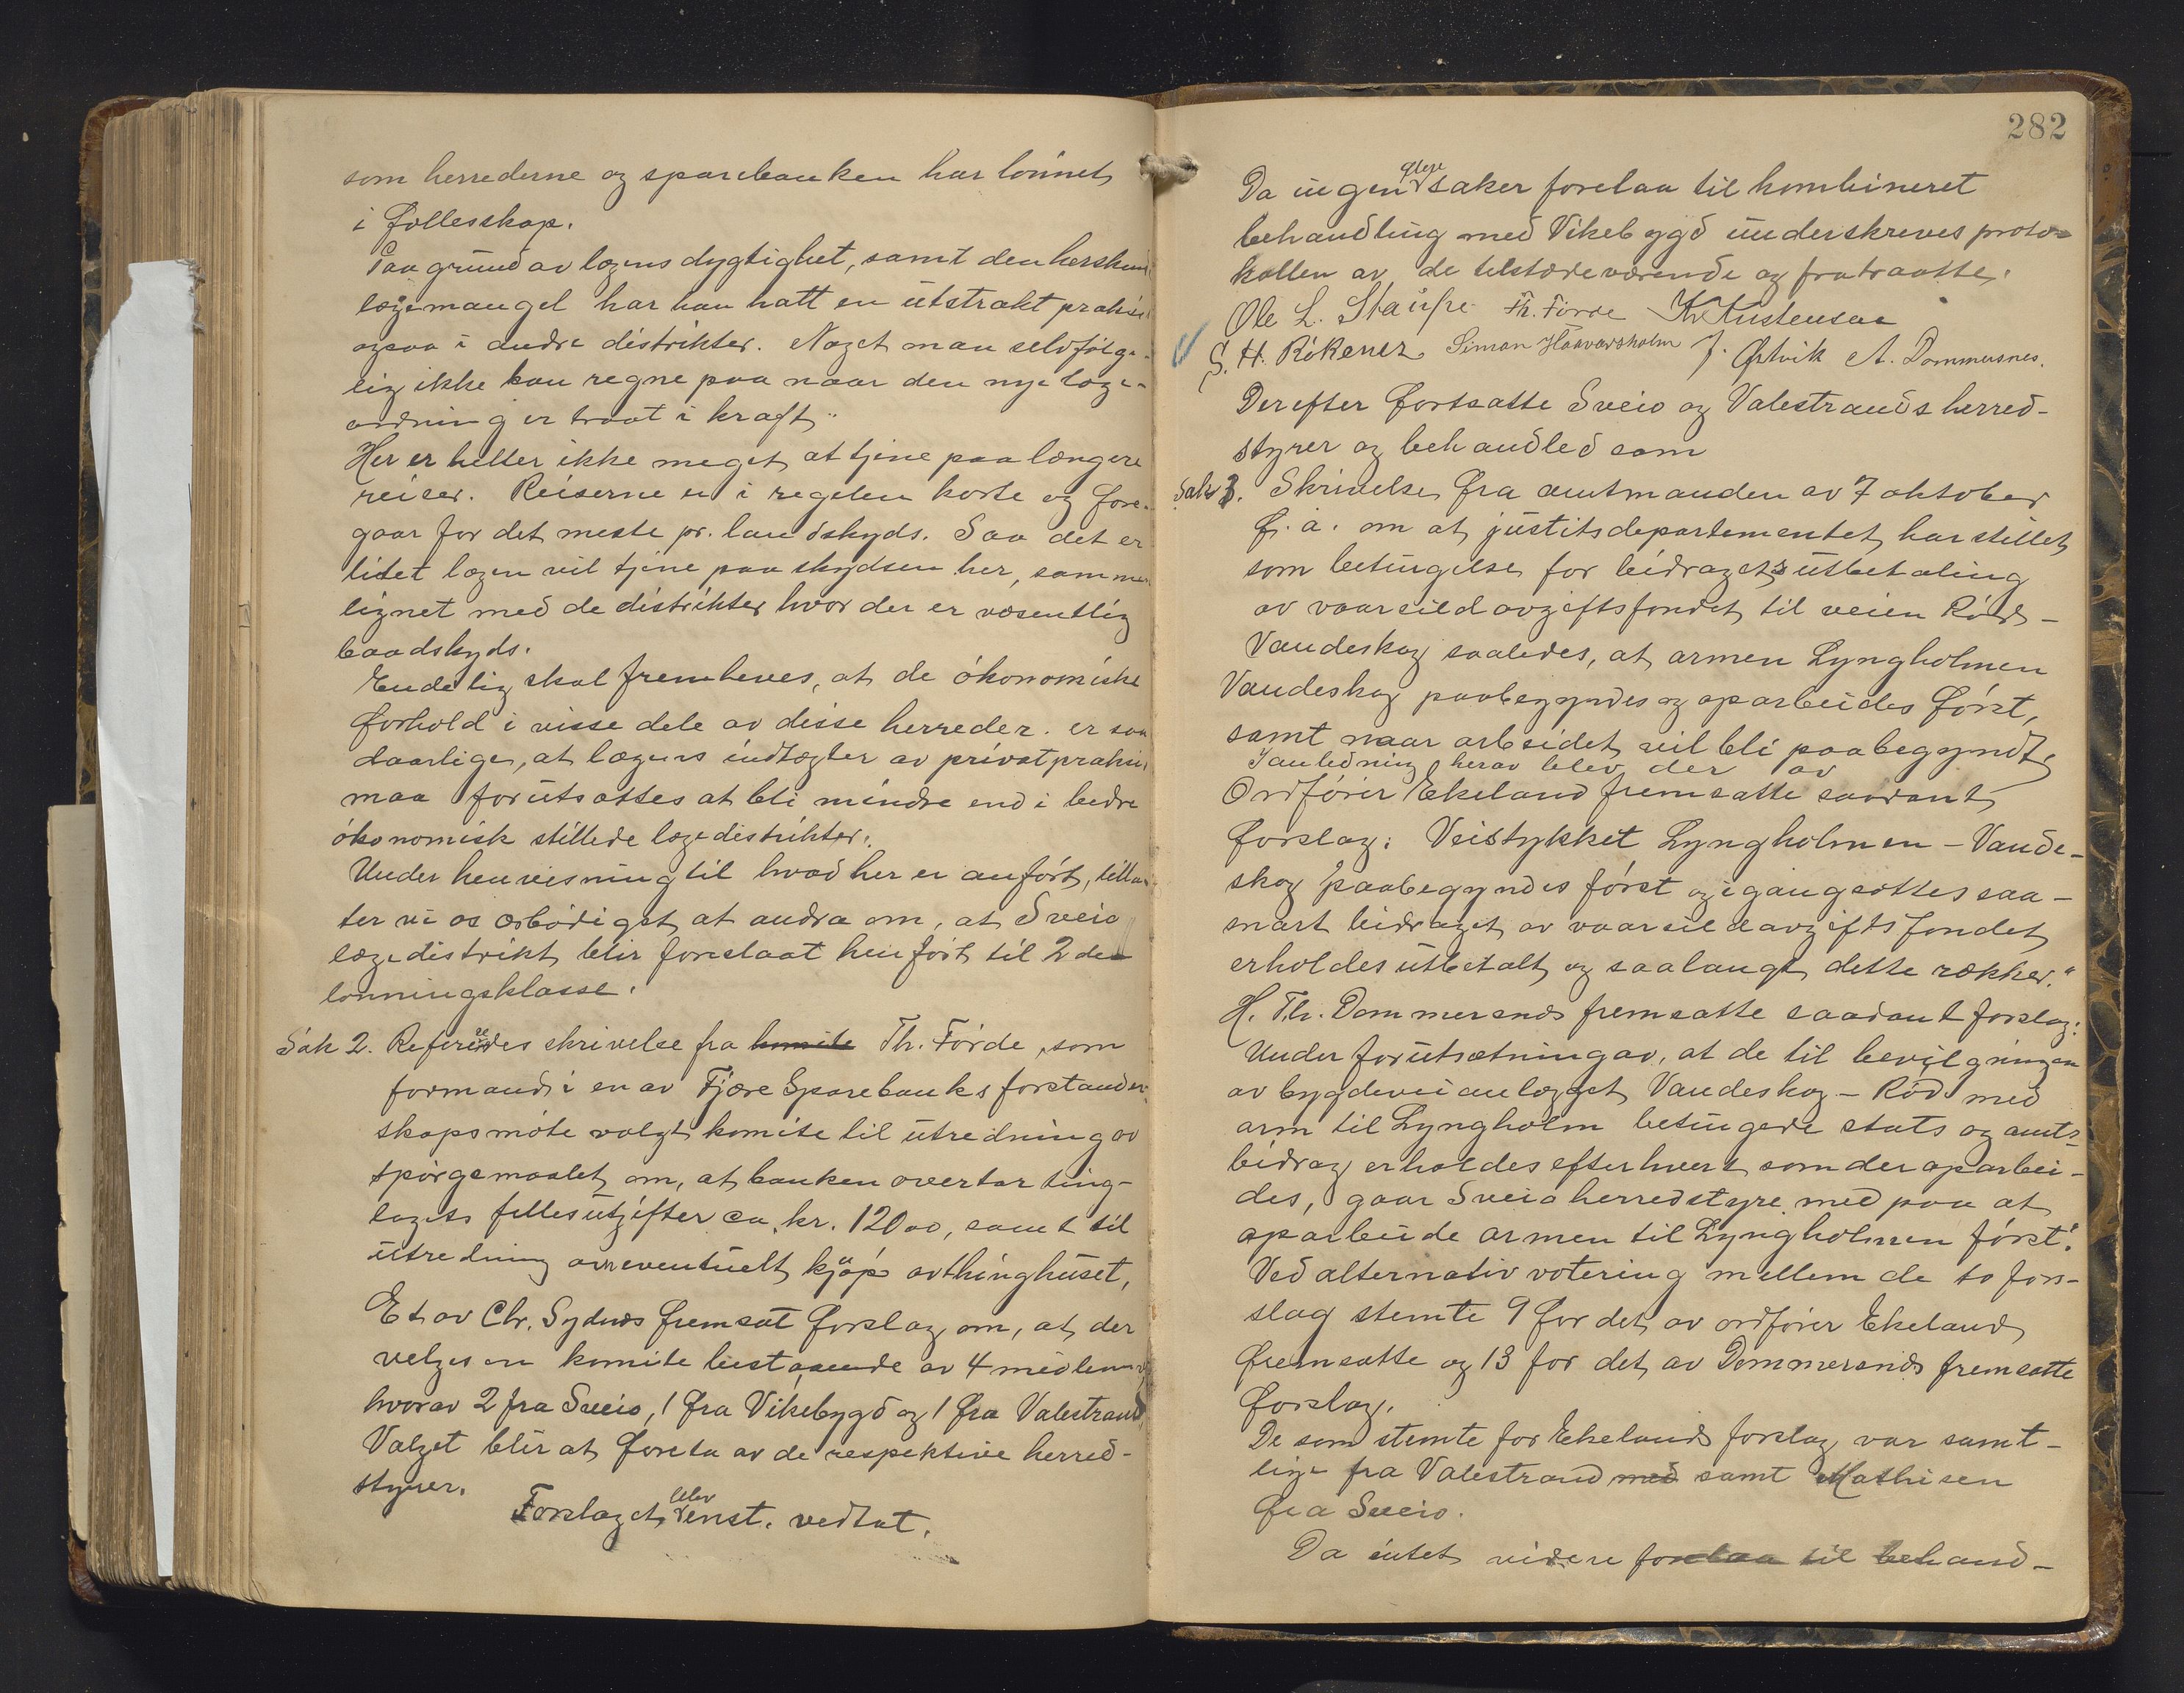 som herrederne og sparebanken har lönnet
i følleskap.
Paa grund av lægens dygtighet, samt den herskende
lægemangel har han hatt en utstrakt praksis
ogsaa i andre distrikter. Noget man selvfölge-
lig ikke kan regne paa naar den nye læge-
ordning er traat i kraft.
Her er heller ikke meget at tjene paa længere
reiser. Reiserne er i regelen korte og fore-
gaar for det meste pr. landskyds. Saa det er
litet lægen vil tjene paa skydsen her, sammen
lignet med de distrikter hvor der er væsentlig
baadskyds.
Endelig skal fremheves, at de ökonomiske
forhold i visse dele av disse herreder er saa
daarlige, at lægens indtægter av privat praksis
maa forutsættes at bli mindre end i bedre
ökonomisk stillede lægedistrikter.
Under henvisning til hvad her er anfört, tilla-
ter vi os ærbödigst at andra om, at Sveio
lægedistrikt blir foreslaat henfört til 2den
lönningsklasse.
Sak 2. Refereredes skrivelse fra komite Th. Förde, som
formand i en av Fjære Sparebanks forstander-
skapsmöte valgt komite til utredning av
spörgsmaalet om, at banken overtar ting-
lagets fellesutgifter ca. kr. 1200, samt til
utredning om eventuelt kjöp av thinghuset,
Et av Chr. Sydnes fremsat forslag om, at der
velges en komite bestaaende av 4 medlemmer
hvorav 2 fra Sveio, 1 fra Vikebygd og 1 fra Valestrand
Valget blir at foreta av de respektive herred-
styrer.
Forslaget blev enst. vedtat.
282
Da ingen flere saker forelaa til kombineret
behandling med Vikebygd underskreves proto-
kollen av de tilstedeværende og fratraatte.
Ole L. Staupe Th. Förde Kr. Kristensen
S. H. Rökenes Simon Haavarsholm J. Østvik A. Dommersnes.
Derefter fortsatte Sveio og Valestrands herred-
styrer og behandled som
Sak 3. Skrivelse fra amtmanden av 7 oktober
f. a. om at justitsdepartementet har stillet
som betingelse for bidragets utbetaling
av vaarsildavgiftsfondet til veien Röd -
Vandeskog saaledes, at armen Lyngholmen
Vandeskog paabegyndes og oparbeides först,
samt naar arbeidet vil bli paabegyndt.
I anledning herav blev der av
Ordförer Ekeland fremsatte saadant
forslag: Veistykket Lyngholmen - Vande-
skog paabegyndes først og igangsættes saa-
snart bidraget av vaarsildavgiftsfondet
erholdes utbetalt og saalangt dette rækker."
H. Th. Dommersnes fremsatte saadant forslag:
Under forutsætning av, at de til bevilgningen
av bygdeveianlægget Vandeskog - Röd med
arm til Lyngholm betingede stats og amts-
bidrag erholdes efterhvert som der oparbei-
des, gaar Sveio herredstyre med paa at
oparbeide armen til Lyngholmen först".
Ved alternativ votering mellem de to for-
slag stemte 9 for det av ordförer Ekeland
fremsatte og 13 for det av Dommersnes fremsatte
forslag.
De som stemte for Ekelands forslag var samt-
lige fra Valestrand med samt Mathisen
fra Sveio.
Da intet videre forelaa til behand-